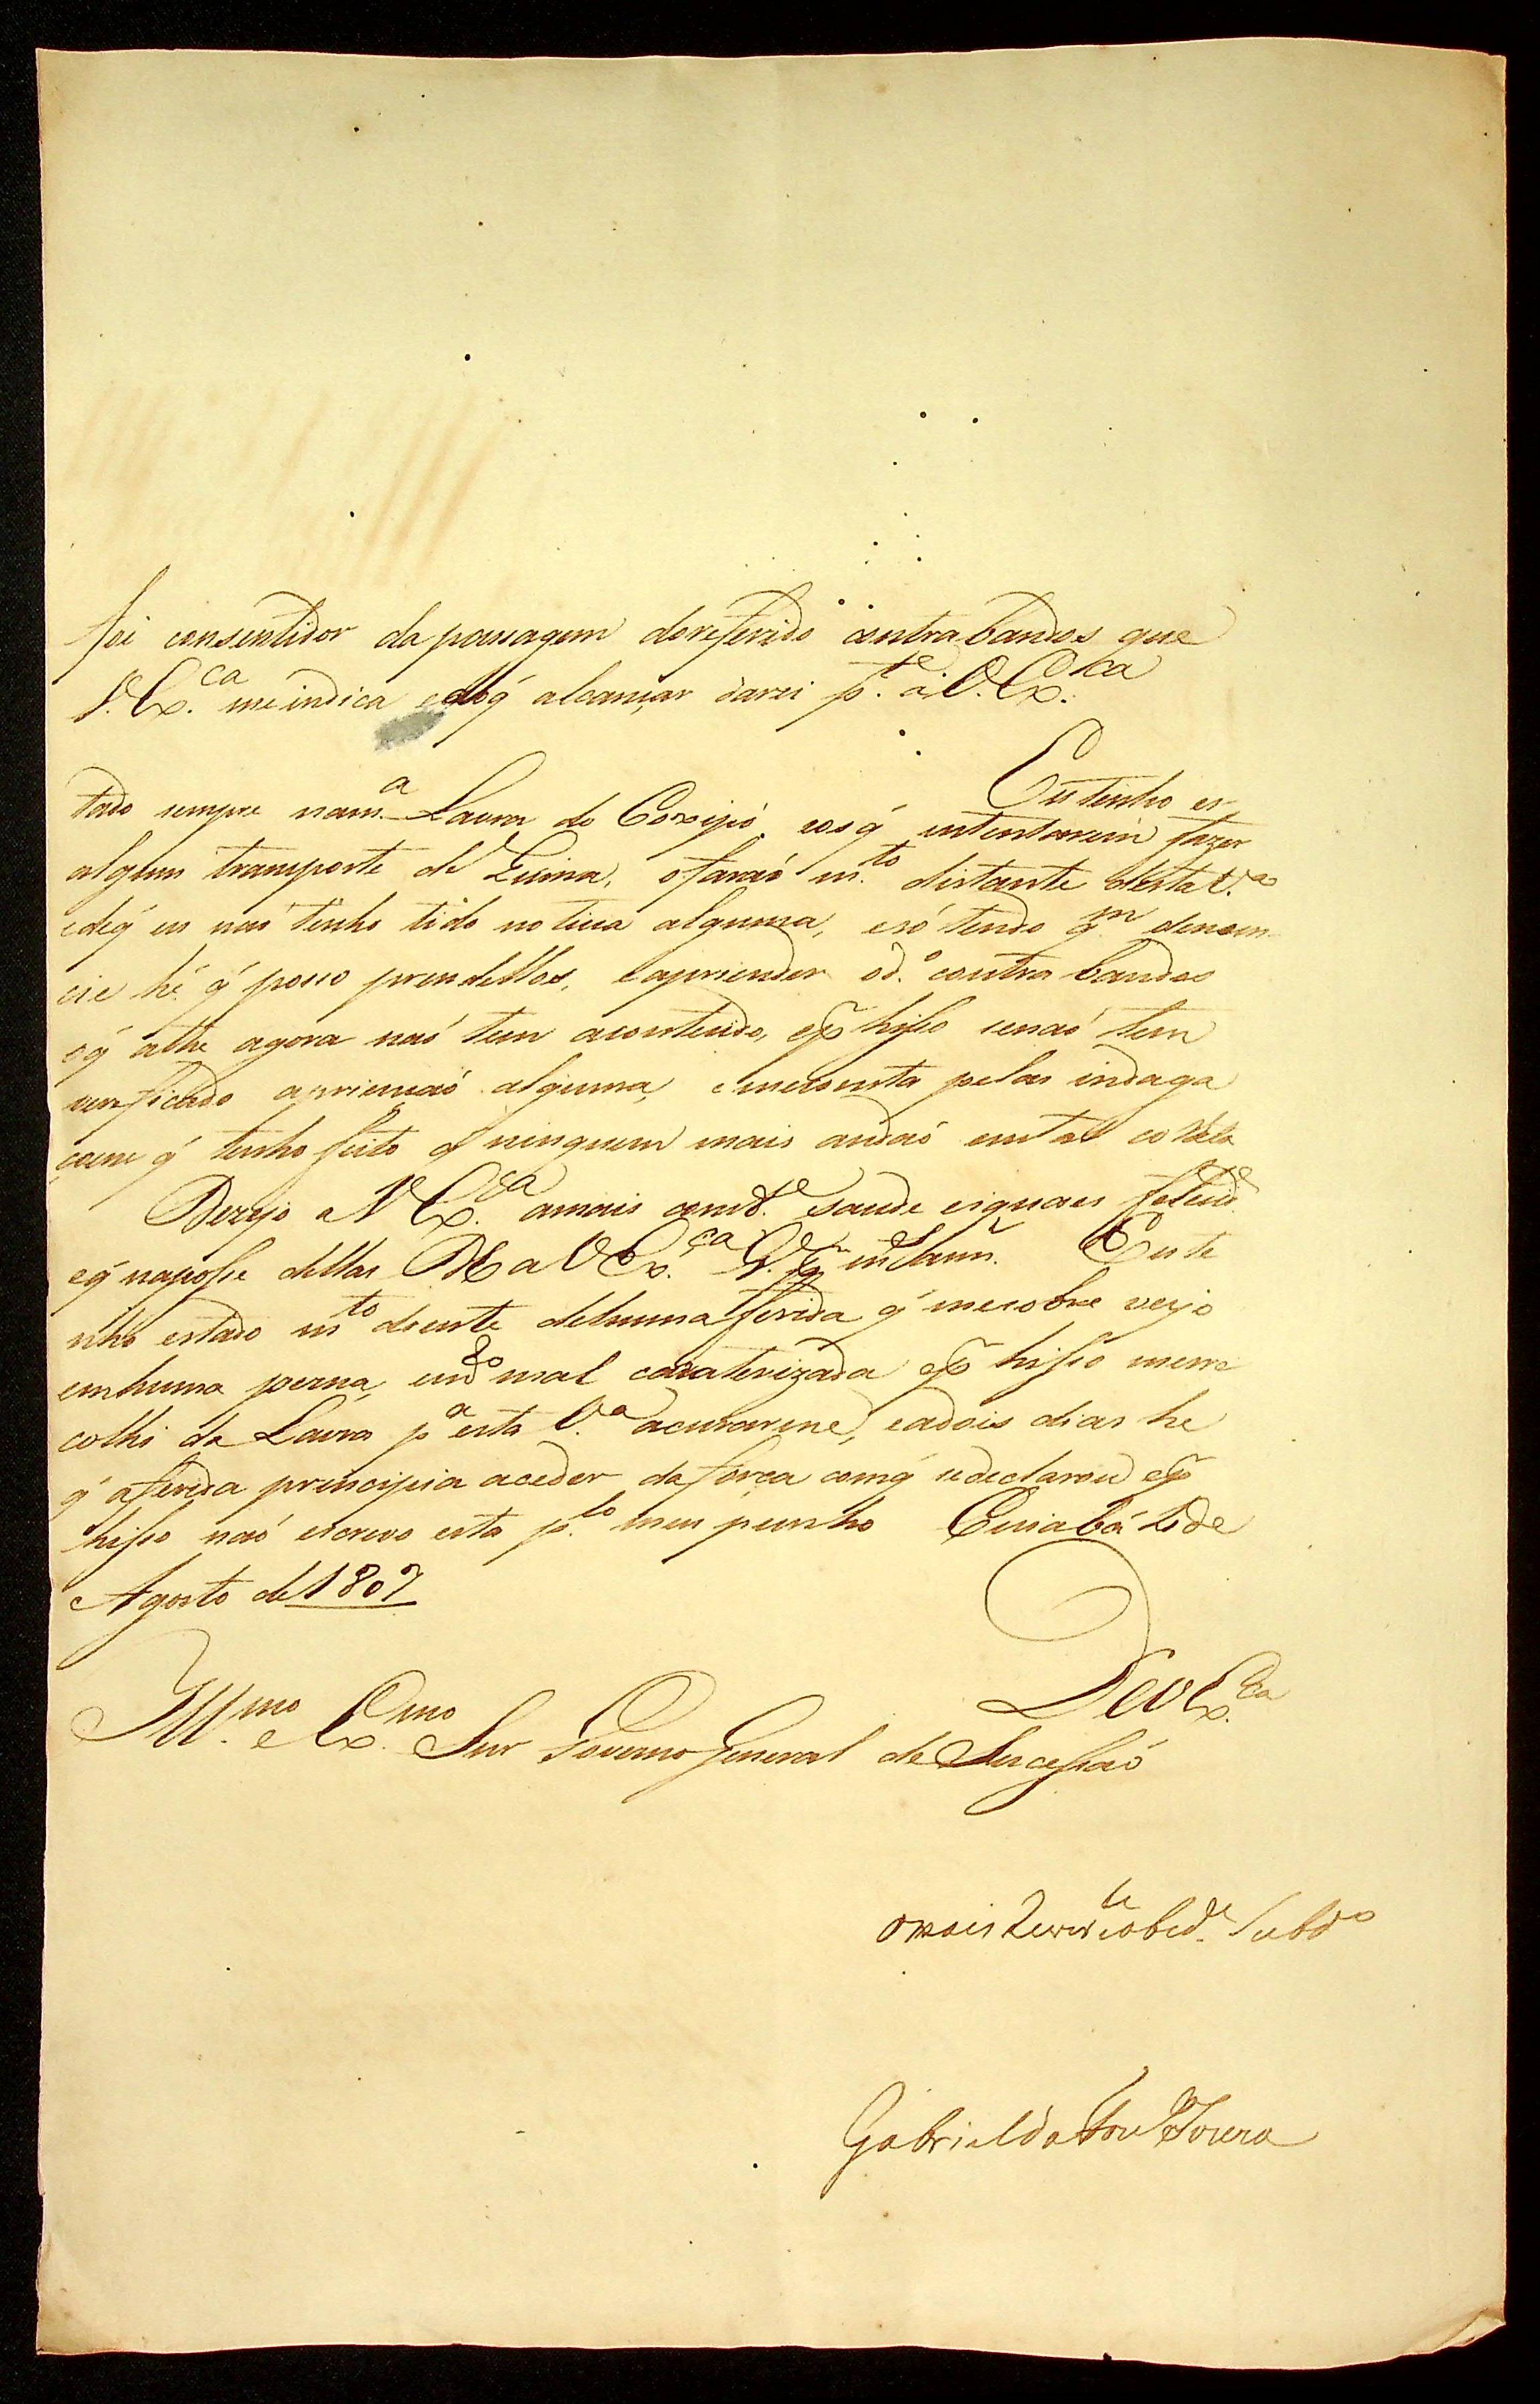 foi consentidor da passagem doreferido contrabandos que
V. Ex.ca me indica edoq' alcançar darei p.te a V. Ex.ca
Eu tenho es-
tado sempre nam.a Lavra do Coxipó, eosq' intentarem fazer
algum transporte de, ofaraó m.to distante desta V.a
edeq' eu naó tenho tido noticia alguma, esó tendo q.m denun-
cie hé q' posso prendellos, eapriender od.o contra bandos
oq' athe agora naó tem acontecido, ep.r hisso senaó tem
verficado apriençaó alguma, emeconsta pelas indaga
çoens q' tenho feito q' ninguem mais andaó em tal
Dezejo a V Ex.ca amais saude eiguaes felecid.e
eq' naposse dellas a V Ex.ca G.e m.s ann.s Eu te
nho estado m.to doente dehuma ferida q' mesobre veyo
emhuma perna, mal caraterizada ep.r hisso mere
colhi da Lavra p.a esta V.a acurarme, eadois dias he
q' aferida principia aceder da força comq' sedeclarou ep.r
hisso naó escrevo esta p.lo meu punho Cuiabá de
Agosto de 1807
De V Ex.ca
Ill.mo e Ex.mo Snr Governo General de Sucessaó
omais rever.te eobed.e Subd.o
Gabriel da Fon.ca Souza